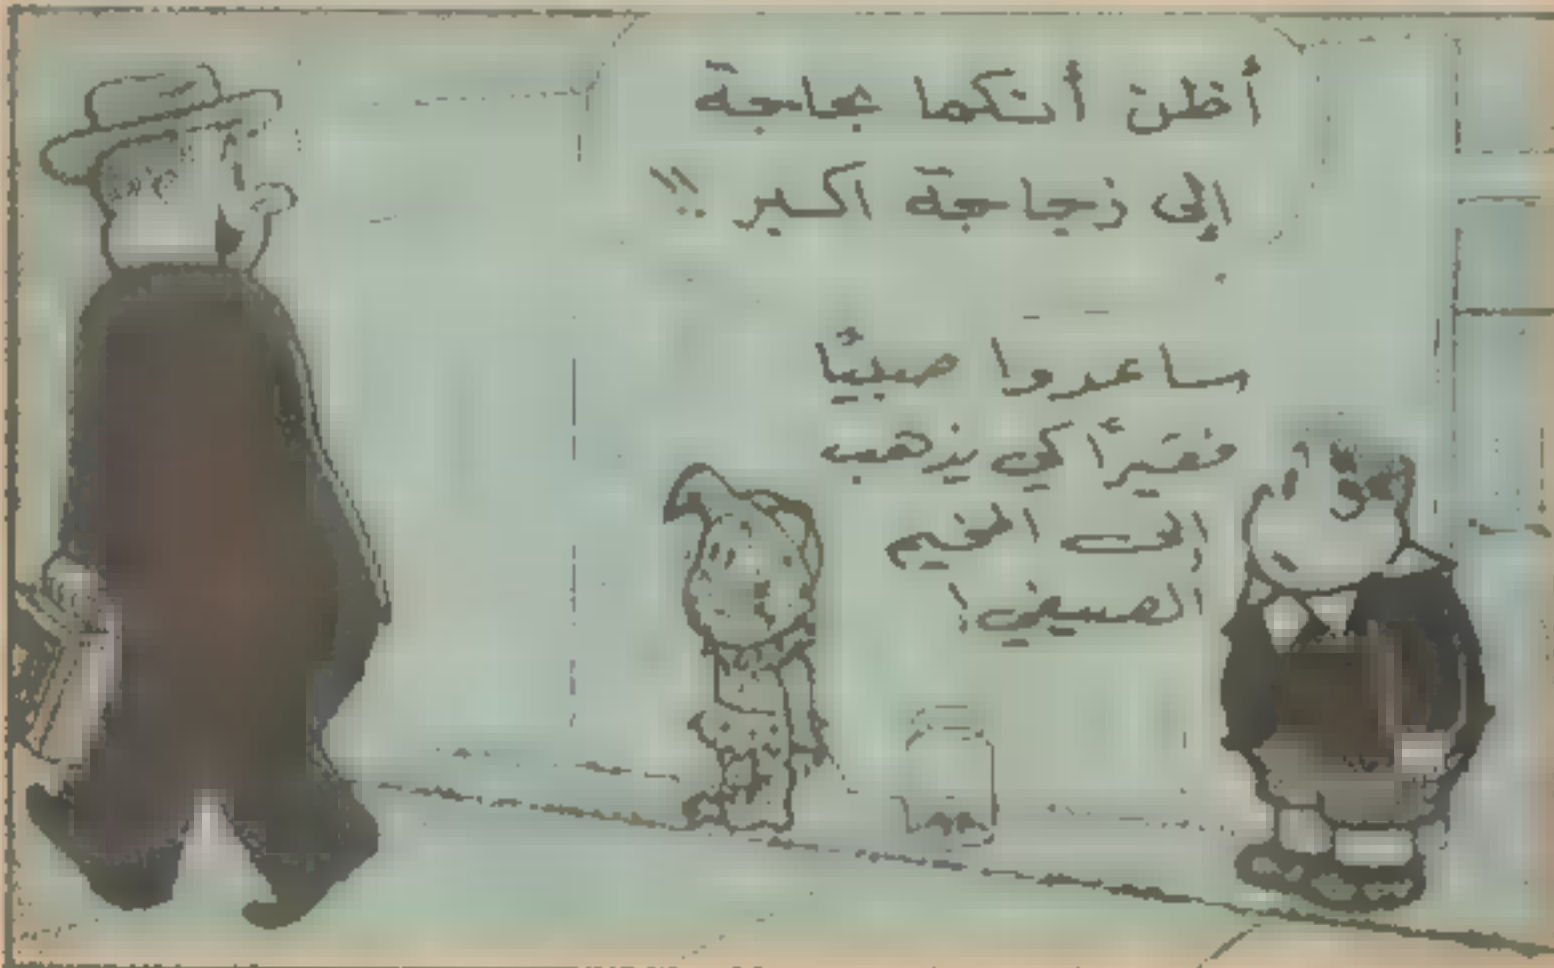 أظن أنكما بحاجة
إلى زجاجة اكبر !!
ساعدوا صبيًا
فقيرًا كي يذهب
إلى المخيم
الصيفي!